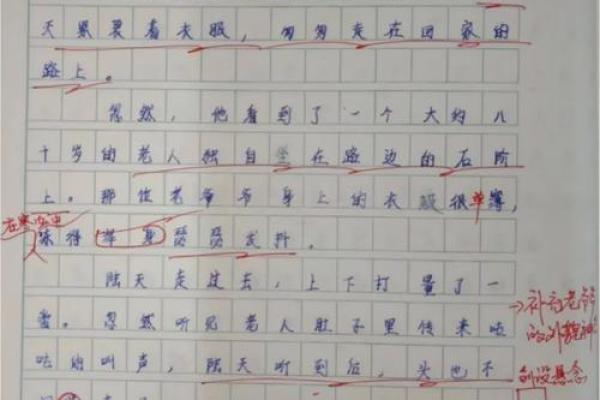 天累裹着衣服，匆匆走在回家的
路上。
忽然，他看到了一个大约几
十岁的老人独自坐在路边的石阶
上。那位老爷爷身上的衣服很单薄，
在寒风中
冻得浑身瑟瑟发抖。
陆天走过去，上下打量了一
番。忽然听见老人肚子里传来咕
咕的叫声，陆天听到后，头也不
→补充老爷爷
的外貌神
创设悬念